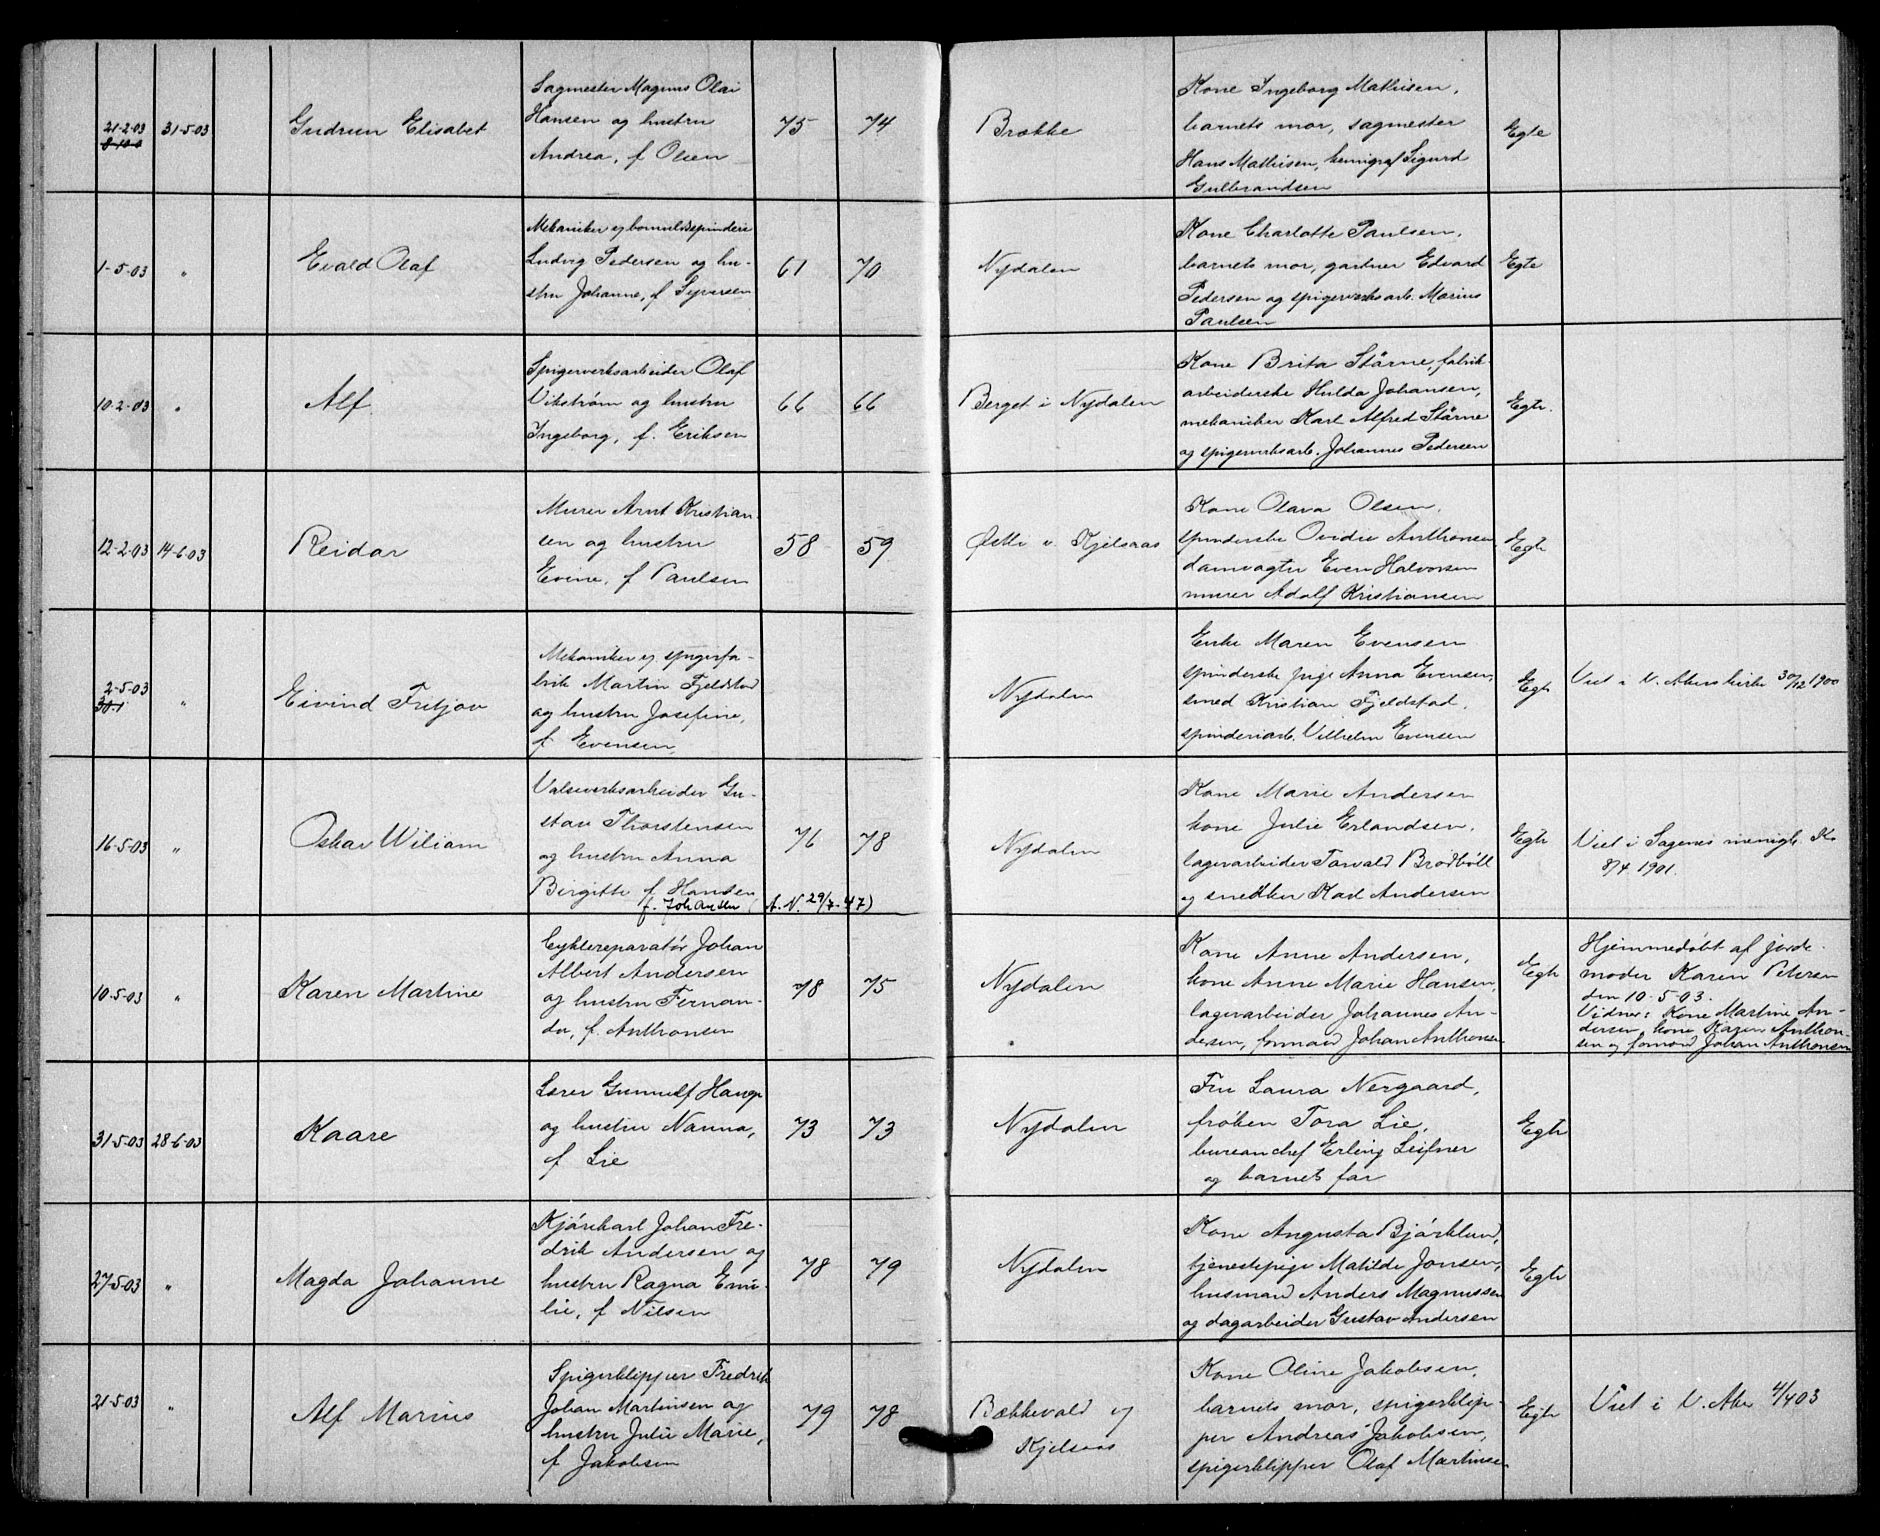 21-2-03 31-5-03 Gudrun Elisabet
8-10-0
Sagmester Magnus Olai
Hansen og hustru
Andrea, f Olsen
75 74
Brække
Kone Ingeborg Mathisen,
barnets mor, sagmester
Hans Mathisen, Sigurd
Gulbrandsen
Egte
1-5-03 " Evald Olaf
Mekaniker v bomuldsspinderi
Ludvig Pedersen og hu-
stru Johanne, f Syversen
61 70
Nydalen
Kone Charlotte Paulsen,
barnets mor, gartner Edvard
Pedersen og spigerverksarb. Marius
Paulsen
Egte
10-2-03 " Alf
Spigerverksarbeider Olaf
Vikstrøm og hustru
Ingeborg, f. Eriksen
66 66
Berget i Nydalen
Kone Brita Stårne, fabrik-
arbeiderske Hulda Johansen,
mekaniker Karl Alfred Stårne
og spigerverksarb. Johannes Pedersen
Egte.
12-2-03 14-6-03 Reidar
Murer Arnt Kristian-
sen og hustru
Evine, f Paulsen
58 59
v. Kjelsaas
Kone Olava Olsen,
spinderske Ovidie Anthonsen
damvogter Even Halvorsen
murer Adolf Kristiansen
Egte
2-5-03 " Eivind Fritjov
30.1
Mekaniker v. spigerfa-
brik Martin Fjeldstad
og hustru Josefine,
f Evensen
Nydalen
Enke Maren Evensen
spinderske pige Anna Evensen,
smed Kristian Fjeldstad,
spinderiarb. Vilhelm Evensen
Egte
Viet i V. Akers kirke 30/12 1900
16-5-03 " Oskar Wiliam
Valseverksarbeider Gu-
stav Thorstensen
og hustru Anna
Birgitte f Hansen
f. Johansen (A.N. 29/7-47)
76 78
Nydalen
Kone Marie Andersen
kone Julie Erlandsen,
lagerarbeider Torvald Brødbøll
og snedker Karl Andersen
Egte
Viet i Sagenes menigh. K.
8/4 1901.
10-5-03 " Karen Martine
Cyklereparatør Johan
Albert Andersen
og hustru Fernan-
da, f. Anthonsen
78 75
Nydalen
Kone Anne Andersen,
kone Anne Marie Hansen,
lagerarbeider Johannes An-
dersen, formand Johan Anthonsen
Egte
Hjemmedøbt af jorde-
moder Karen Petersen
den 10-5-03.
Vidner: Kone Martine An-
dersen, kone Karen Anthon-
sen og formand Johan Anthonsen
31-5-03 28-6-03 Kaare
Lærer Gunnulf Hauge
og hustru Nanna,
f Lie
73 73
Nydalen
Fru Laura Nergaard,
frøken Tora Lie,
bureauchef Erling Leifner
og barnets far
Egte
27-5-03 " Magda Johanne
Kjørekarl Johan Fre-
drik Andersen og
hustru Ragna Emi-
lie, f Nilsen
78 79
Nydalen
Kone Augusta Bjørklund,
tjenestepige Matilde Jonsen,
husmand Anders Magnussen
og dagarbeider Gustav Andersen
Egte
21-5-03 " Alf Marius
Spigerklipper Fredrik
Johan Martinsen og
hustru Julie Marie,
f Jakobsen
79 78
Bækkevald v
Kjelsaas
Kone Oline Jakobsen,
barnets mor, spigerklip-
per Andreas Jakobsen,
spigerklipper Olaf Martinsen
Egte
Viet i V. Aker 4/4 03